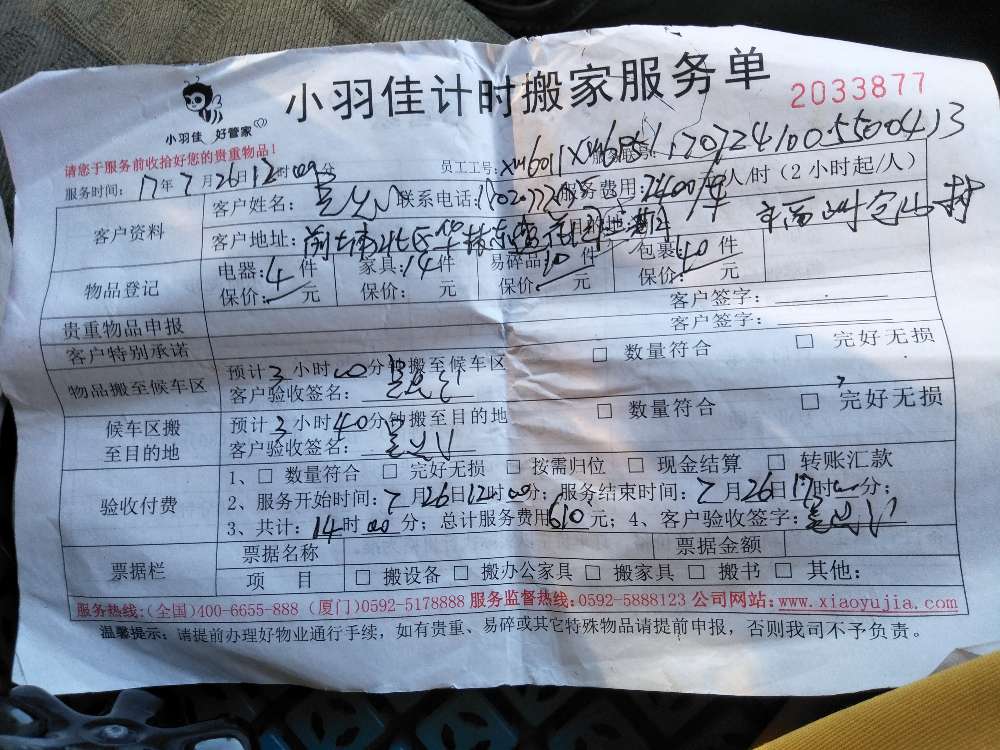 小羽佳计时搬家服务单
2033877
小羽佳 好管家
请您于服务前收拾好您的贵重物品!
员工工号: 1707241005500413
服务时间: 17年7月26日12时00分
服务费用: 元/人/时(2小时起/人)
客户资料
客户姓名: 联系电话:
客户地址: 目的地:
物品登记
电器: 4件 家具: 14件 易碎品: 10件 包裹: 10件
保价: 元 保价: 元 保价: 元 保价: 元
贵重物品申报 客户签字:
客户特别承诺 客户签字:
物品搬至候车区
预计3小时00分钟搬至候车区 □ 数量符合 □ 完好无损
客户验收签名:
候车区搬
至目的地
预计3小时40分钟搬至目的地 □ 数量符合 □ 完好无损
客户验收签名:
验收付费
1、□ 数量符合 □ 完好无损 □ 按需归位 □ 现金结算 □ 转账汇款
2、服务开始时间: 7月26日12时00分; 服务结束时间: 7月26日17时00分;
3、共计: 14时00分; 总计服务费用610元; 4、客户验收签字:
票据栏
票据名称 票据金额
项 目 □ 搬设备 □ 搬办公家具 □ 搬家具 □ 搬书 □ 其他:
服务热线:(全国)400-6655-888 (厦门)0592-5178888 服务监督热线:0592-5888123 公司网站:www.xiaoyujia.com
温馨提示: 请提前办理好物业通行手续，如有贵重、易碎或其它特殊物品请提前申报，否则我司不予负责。